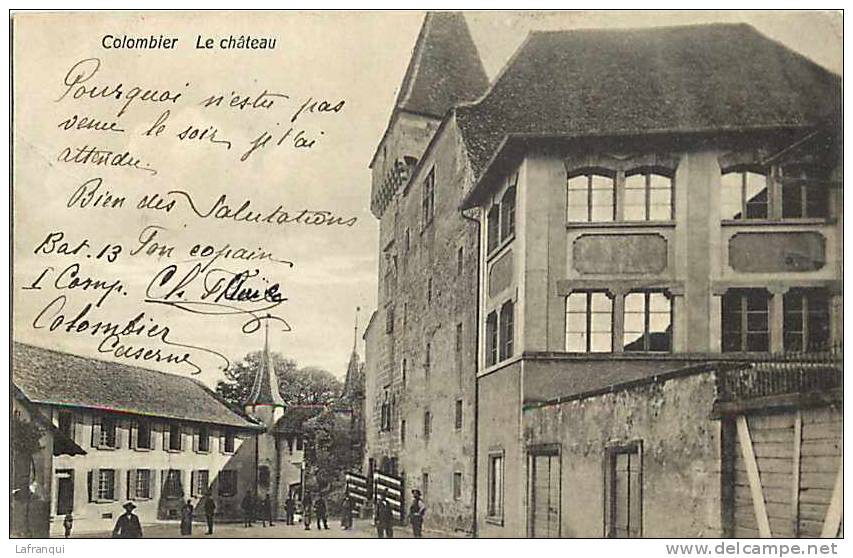 Colombier Le château
Pourquoi n'estu pas
venu le soir, j t'ai
attendu.
Bien des Salutations
Bat. 13 Ton copain
I Comp. Ch.
Colombier
Caserne
Lafranqui
www.delcampe.net